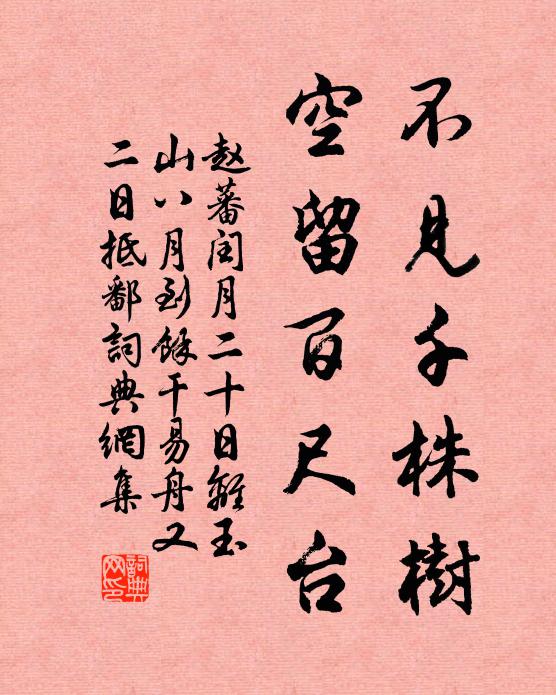 不見千株樹
空留百尺台
赵蕃闰月二十日離玉
山八月到餘干易舟又
二日抵鄱詞典網集
詞典
网印